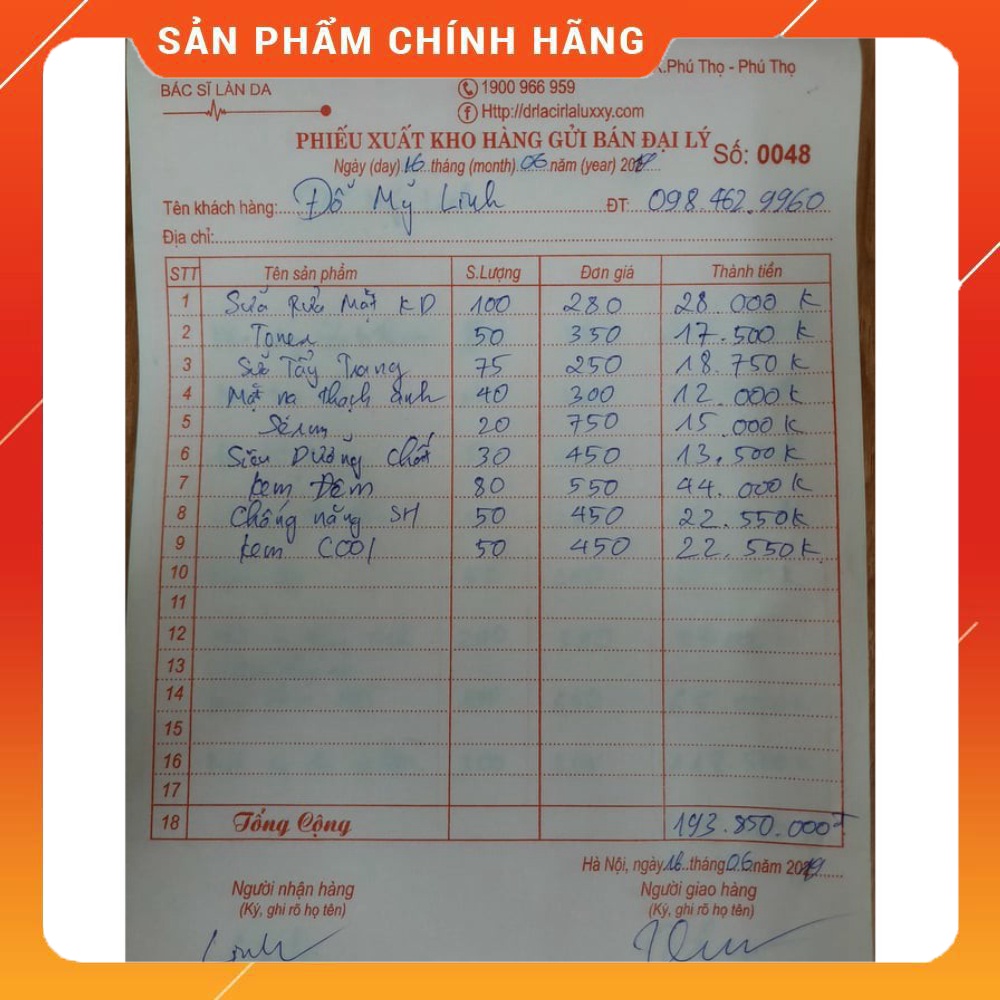 SẢN PHẨM CHÍNH HÃNG
X.Phú Thọ - Phú Thọ
BÁC SĨ LÀN DA
1900 966 959
Http://drlacirlaluxxy.com
PHIẾU XUẤT KHO HÀNG GỬI BÁN ĐẠI LÝ Số: 0048
Ngày (day) 16 tháng (month) 06 năm (year) 2019
Tên khách hàng: Đỗ Mỹ Linh ĐT: 098.462.9960
Địa chỉ:
STT Tên sản phẩm S.Lượng Đơn giá Thành tiền
1 Sữa Rửa Mặt KD 100 280 28.000 K
2 Toner 50 350 17.500 K
3 Sữa Tẩy Trang 75 250 18.750 K
4 Mặt nạ Thạch anh 40 300 12.000 K
5 Sérum 20 750 15 000 K
6 Siêu Dưỡng Chất 30 450 13.500 K
7 Kem Đêm 80 550 44.000 K
8 Chống nắng SH 50 450 22.550K
9 Kem COOl 50 450 22.550K
10
11
12
13
14
15
16
17
18 Tổng Cộng 193.850.000đ
Hà Nội, ngày 16 tháng 06 năm 2019
Người nhận hàng Người giao hàng
(Ký, ghi rõ họ tên) (Ký, ghi rõ họ tên)
Linh